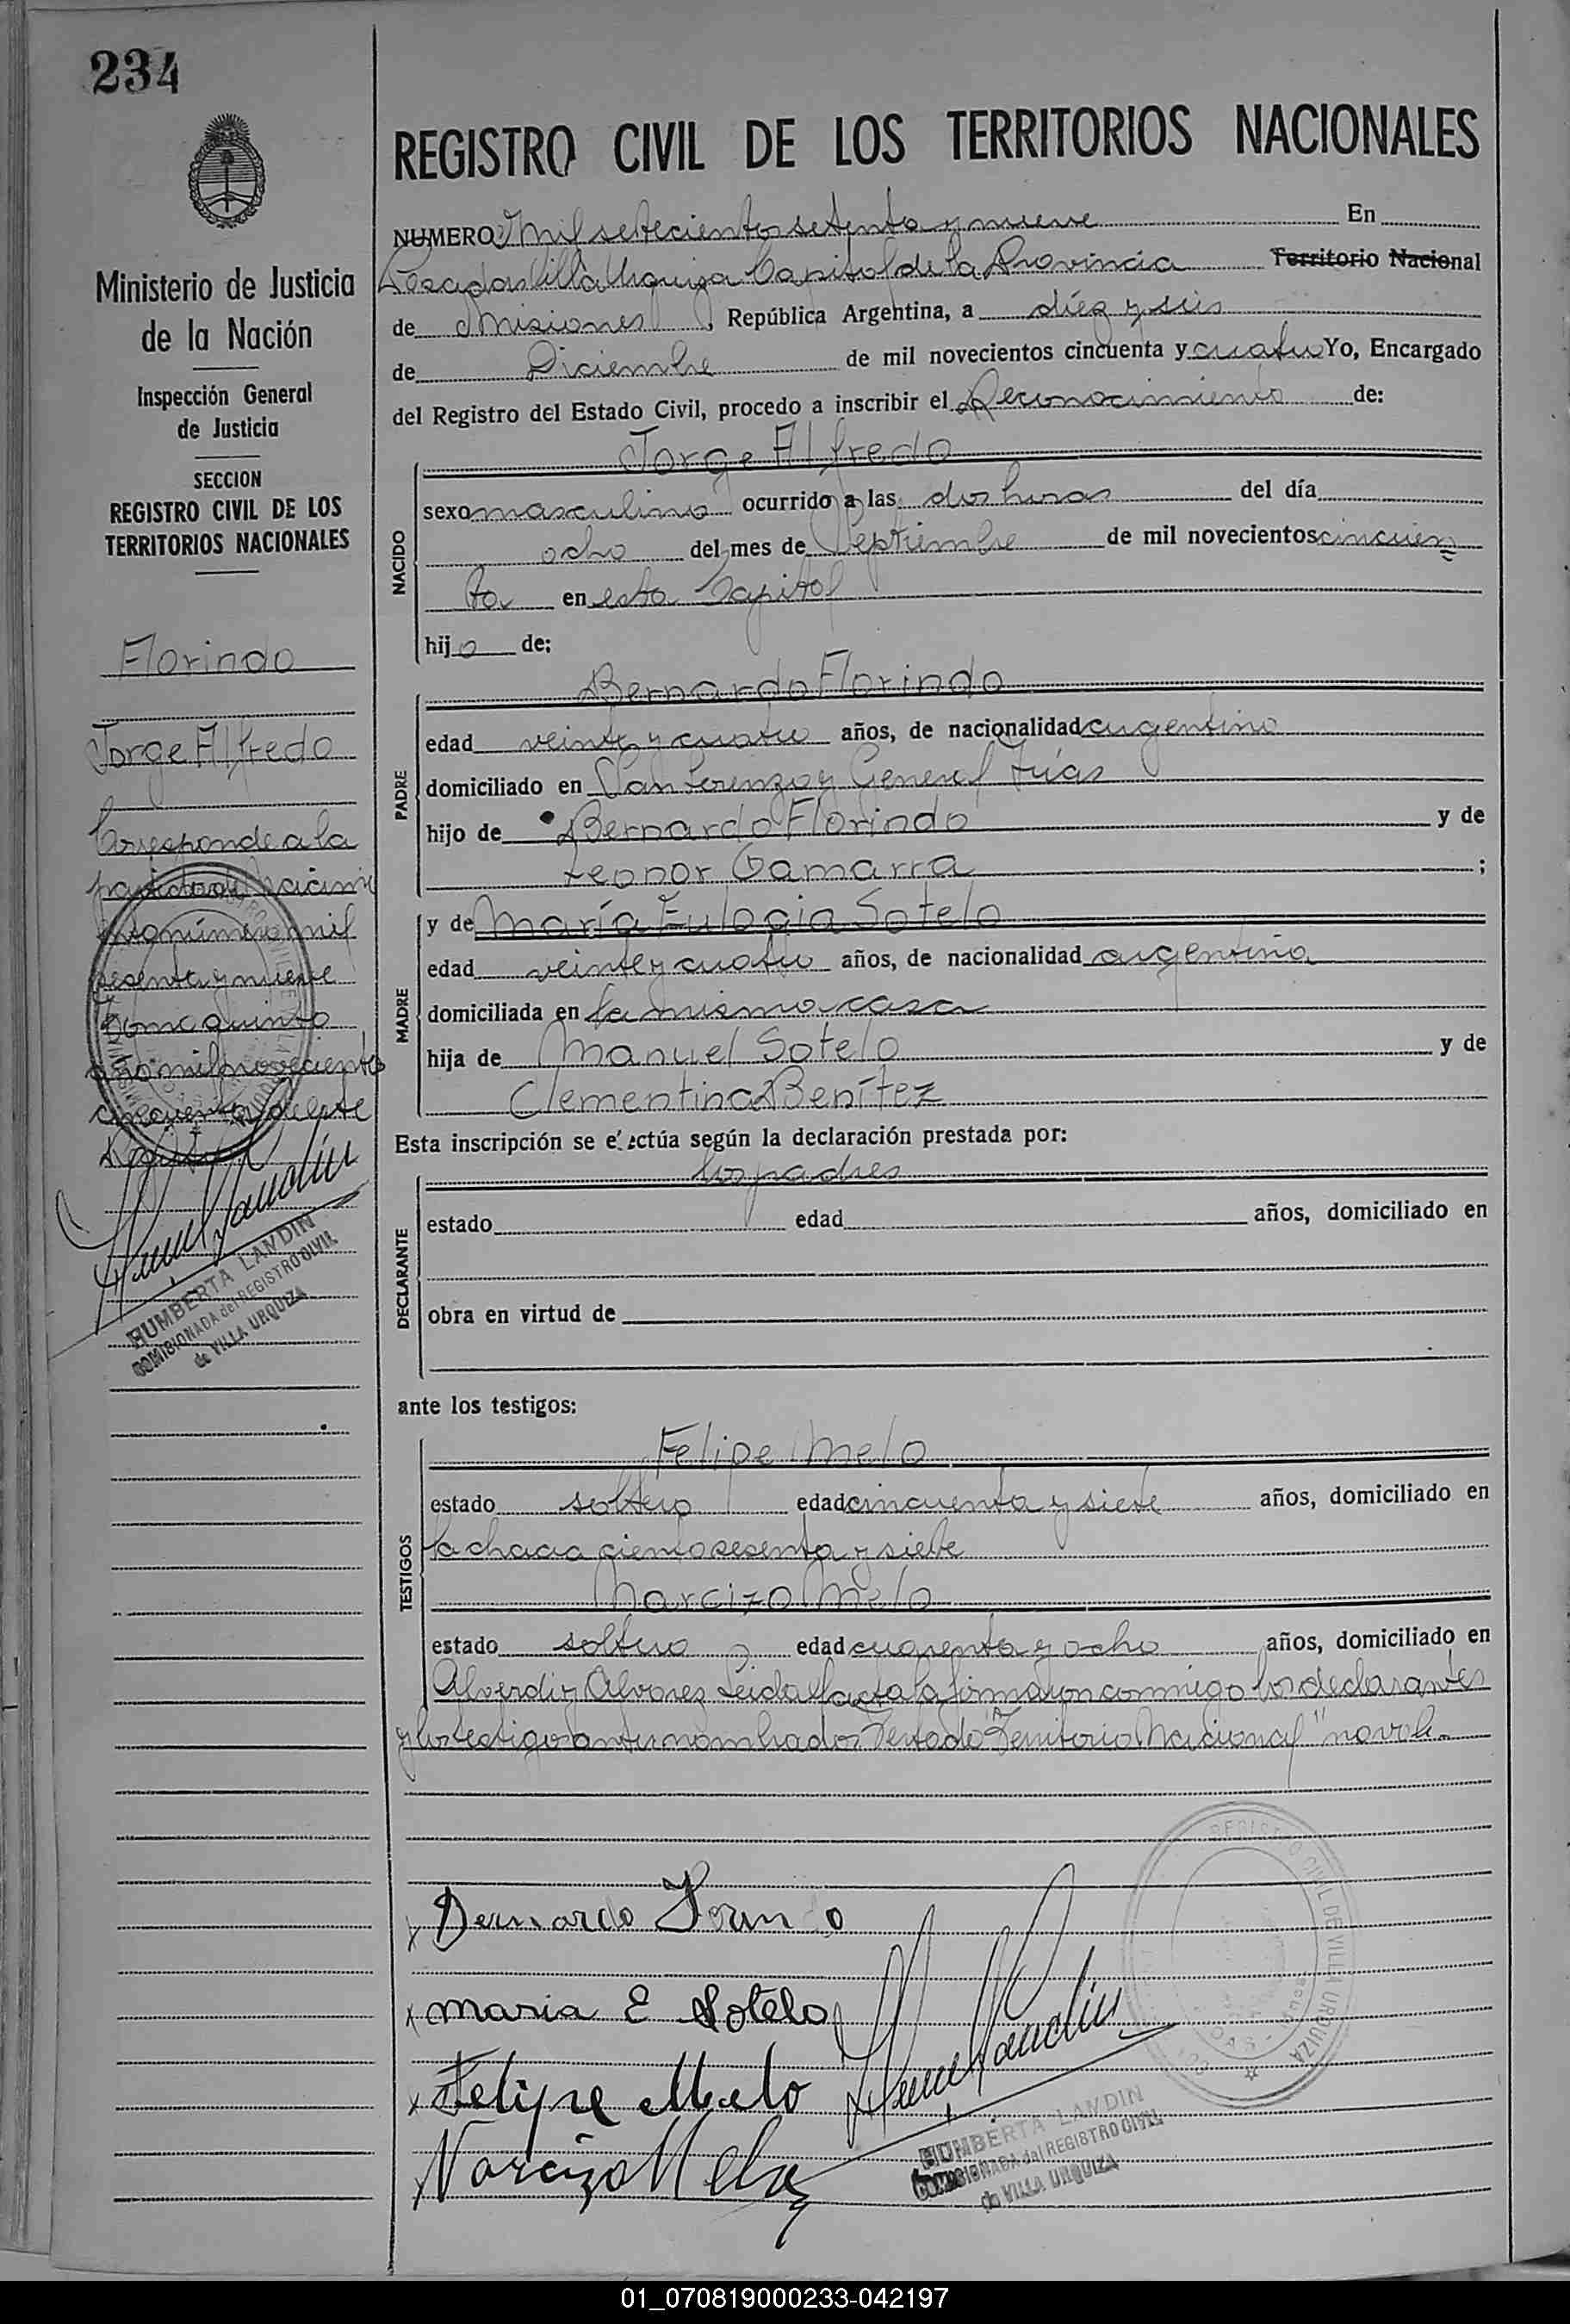 234
REGISTRO CIVIL DE LOS TERRITORIOS NACIONALES
NUMERO Mil setecientos setenta y nueve En
Posadas Villa Urquiza Capital de la Provincia Territorio Nacional
de Misiones, República Argentina, a diez y seis
de Diciembre de mil novecientos cincuenta y cuatro Yo, Encargado
del Registro del Estado Civil, procedo a inscribir el Reconocimiento de:
Ministerio de Justicia
de la Nación
Inspección General
de Justicia
SECCION
REGISTRO CIVIL DE LOS
TERRITORIOS NACIONALES
Florindo
Jorge Alfredo
Corresponde a la
partida de nacimi
ento número mil
sesenta y nueve
Tomo quinto
año mil novecientos
cincuenta de este
HUMBERTA LANDIN
COMISIONADA del REGISTRO CIVIL
de VILLA URQUIZA
NACIDO
Jorge Alfredo
sexo masculino ocurrido a las dos horas del día
ocho del mes de Septiembre de mil novecientos cincuen
ta en esta Capital
hijo de:
PADRE
Bernardo Florindo
edad veinte y cuatro años, de nacionalidad argentino
domiciliado en San Lorenzo y General Frías
hijo de Bernardo Florindo y de
Leonor Gamarra ;
MADRE
y de María Eulogia Sotelo
edad veinte y cuatro años, de nacionalidad argentina
domiciliada en la misma casa
hija de Manuel Sotelo y de
Clementina Benítez
Esta inscripción se efectúa según la declaración prestada por:
DECLARANTE
los padres
estado edad años, domiciliado en
obra en virtud de
ante los testigos:
TESTIGOS
Felipe Melo
estado soltero edad cincuenta y siete años, domiciliado en
la chacra ciento sesenta y siete
Narcizo Melo
estado soltero edad cuarenta y ocho años, domiciliado en
Alverdi y Alvarez. Leida el acta la firmaron conmigo los declarantes
y los testigos antes nombrados Testado "Territorio Nacional" no vale.
Bernardo Florindo
maria E Sotelo
Felipe Melo
Narcizo Melo
REGISTRO CIVIL DE VILLA URQUIZA
HUMBERTA LANDIN
COMISIONADA del REGISTRO CIVIL
de VILLA URQUIZA
01_070819000233-042197